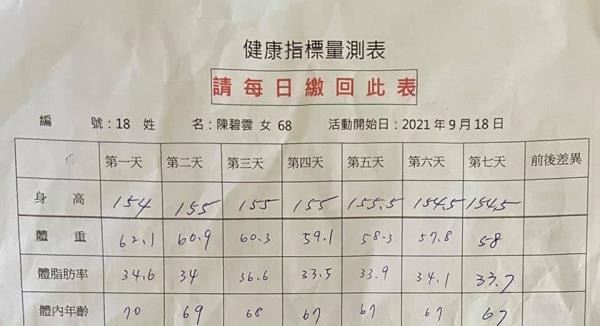 健康指標量測表
請每日繳回此表
編 號：18 姓 名：陳碧雲 女 68 活動開始日：2021年9月18日
第一天 第二天 第三天 第四天 第五天 第六天 第七天 前後差異
身 高 154 155 155 155 155.5 154.5 154.5
體 重 62.1 60.9 60.3 59.1 58.3 57.8 58
體脂肪率 34.6 34 36.6 33.5 33.9 34.1 33.7
體內年齡 70 69 68 67 67 67 67